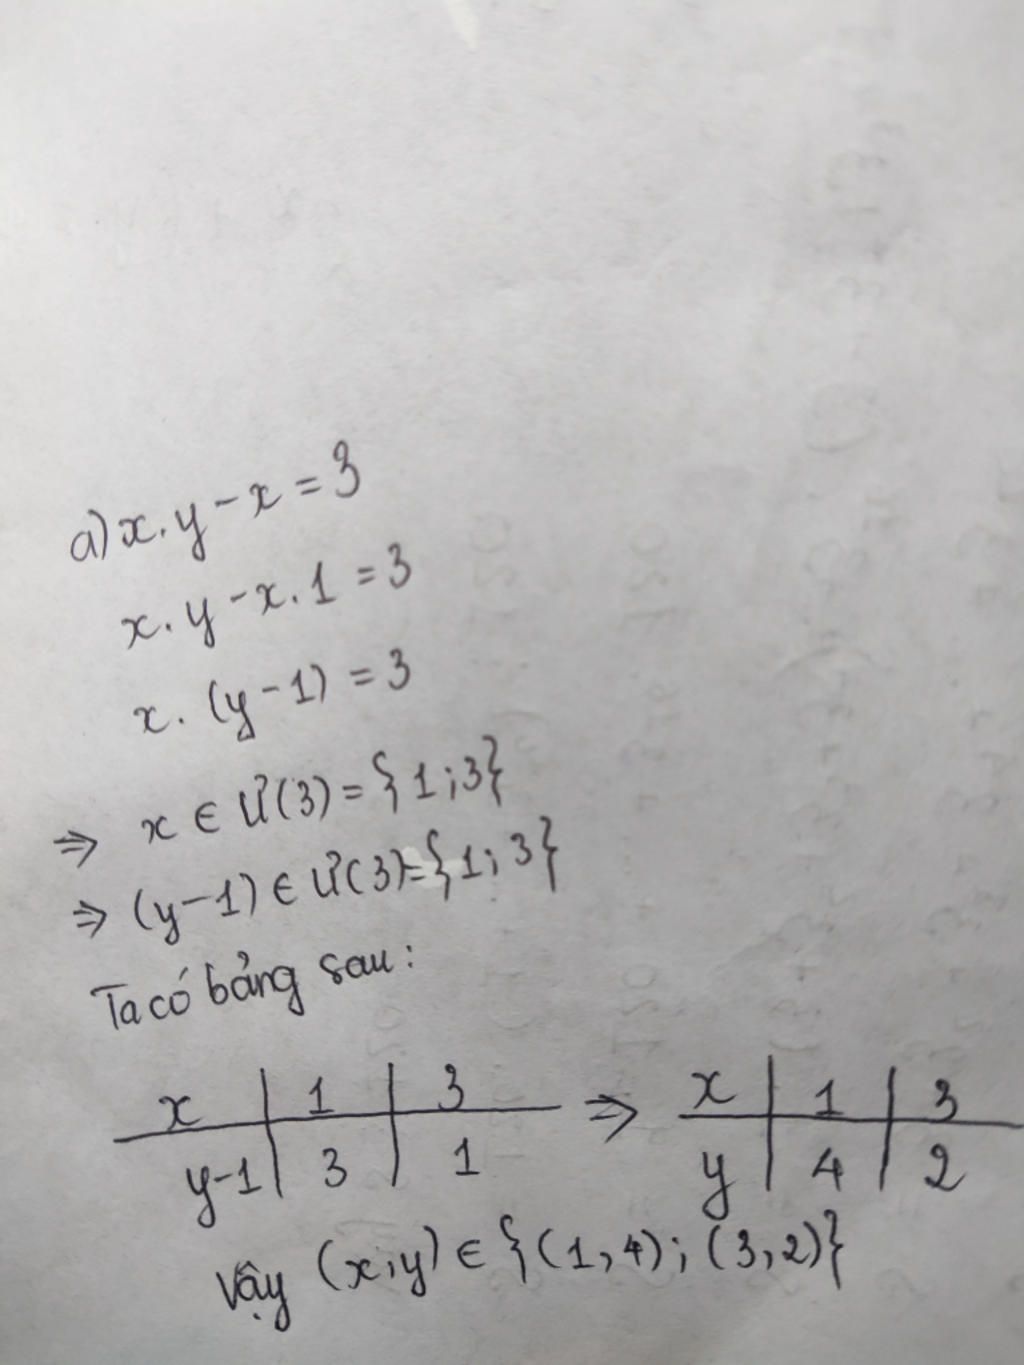 a) x.y - x = 3
x.y - x.1 = 3
x.(y-1) = 3
⇒ x ∈ Ư(3) = {1;3}
⇒ (y-1) ∈ Ư(3) = {1;3}
Ta có bảng sau:
x | 1 | 3 ⇒ x | 1 | 3
y-1 | 3 | 1 y | 4 | 2
Vậy (x,y) ∈ {(1,4); (3,2)}